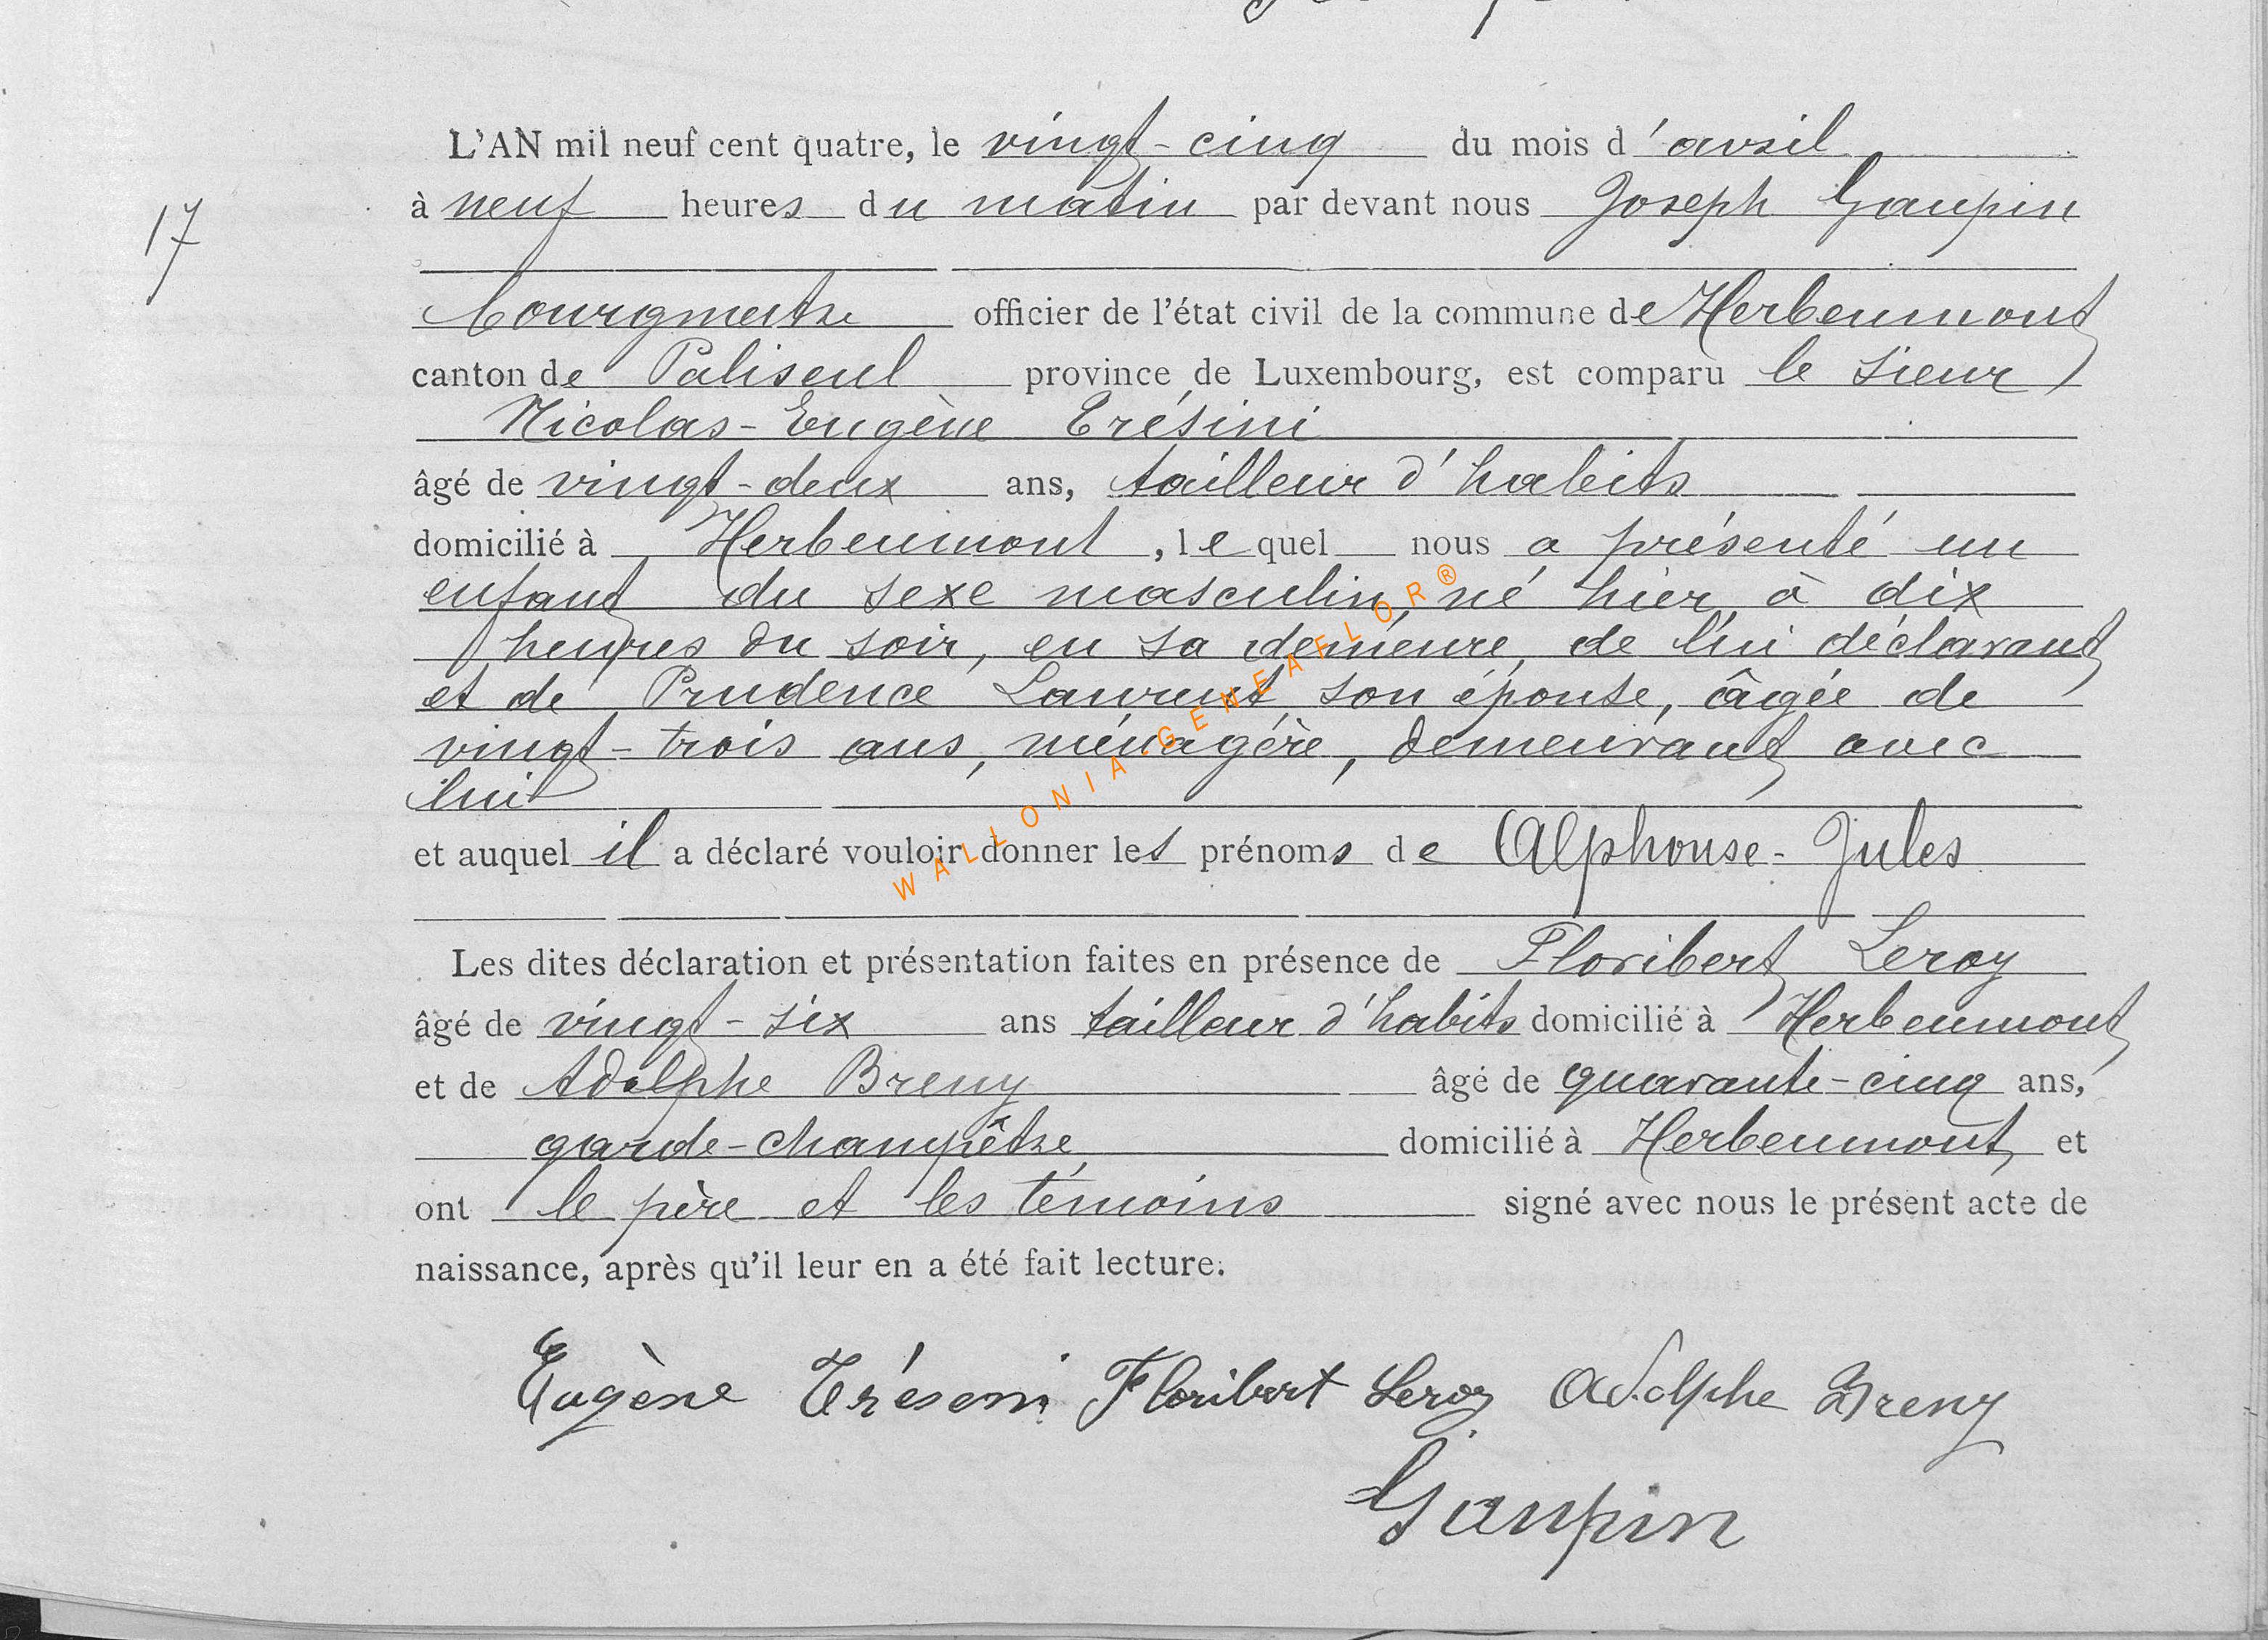 L'AN mil neuf cent quatre, le vingt-cinq du mois d'avril
17
à neuf heures du matin par devant nous Joseph Gaupin
bourgmestre officier de l'état civil de la commune de Herbeumont
canton de Paliseul province de Luxembourg, est comparu le sieur
Nicolas-Eugène Trésini
âgé de vingt-deux ans, tailleur d'habits
domicilié à Herbeumont, lequel nous a présenté un
enfant du sexe masculin, né hier, à dix
heures du soir, en sa demeure, de lui déclarant
et de Prudence Laurent, son épouse, âgée de
vingt-trois ans, ménagère, demeurant avec
lui
et auquel il a déclaré vouloir donner les prénoms de Alphonse-Jules
WALLONIA-GENEAFLOR®
Les dites déclaration et présentation faites en présence de Floribert Leroy
âgé de vingt-six ans tailleur d'habits domicilié à Herbeumont
et de Adolphe Breny âgé de quarante-cinq ans,
garde-champêtre domicilié à Herbeumont, et
ont le père et les témoins signé avec nous le présent acte de
naissance, après qu'il leur en a été fait lecture.
Eugène Trésini Floribert Leroy Adolphe Breny
Gaupin